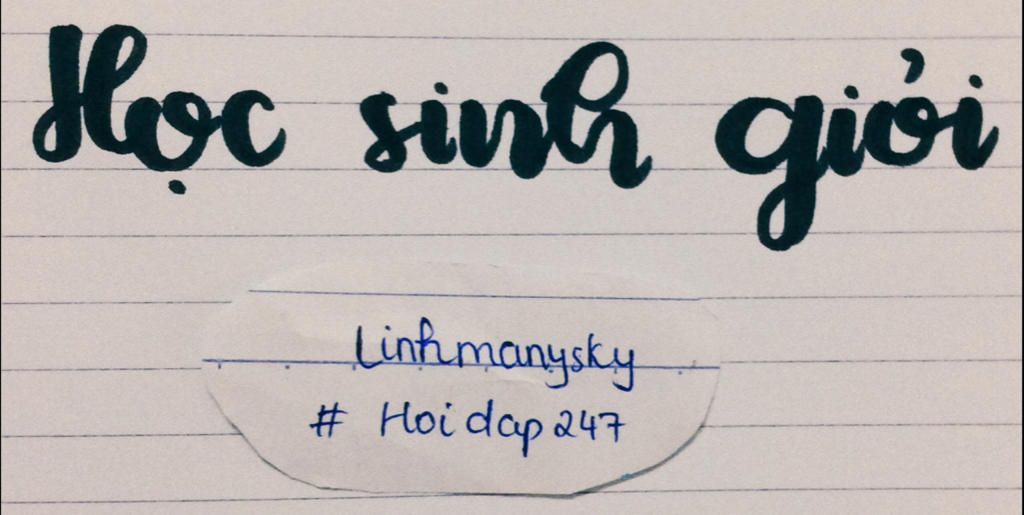 Học sinh giỏi
Linhmanysky
# Hoidap247